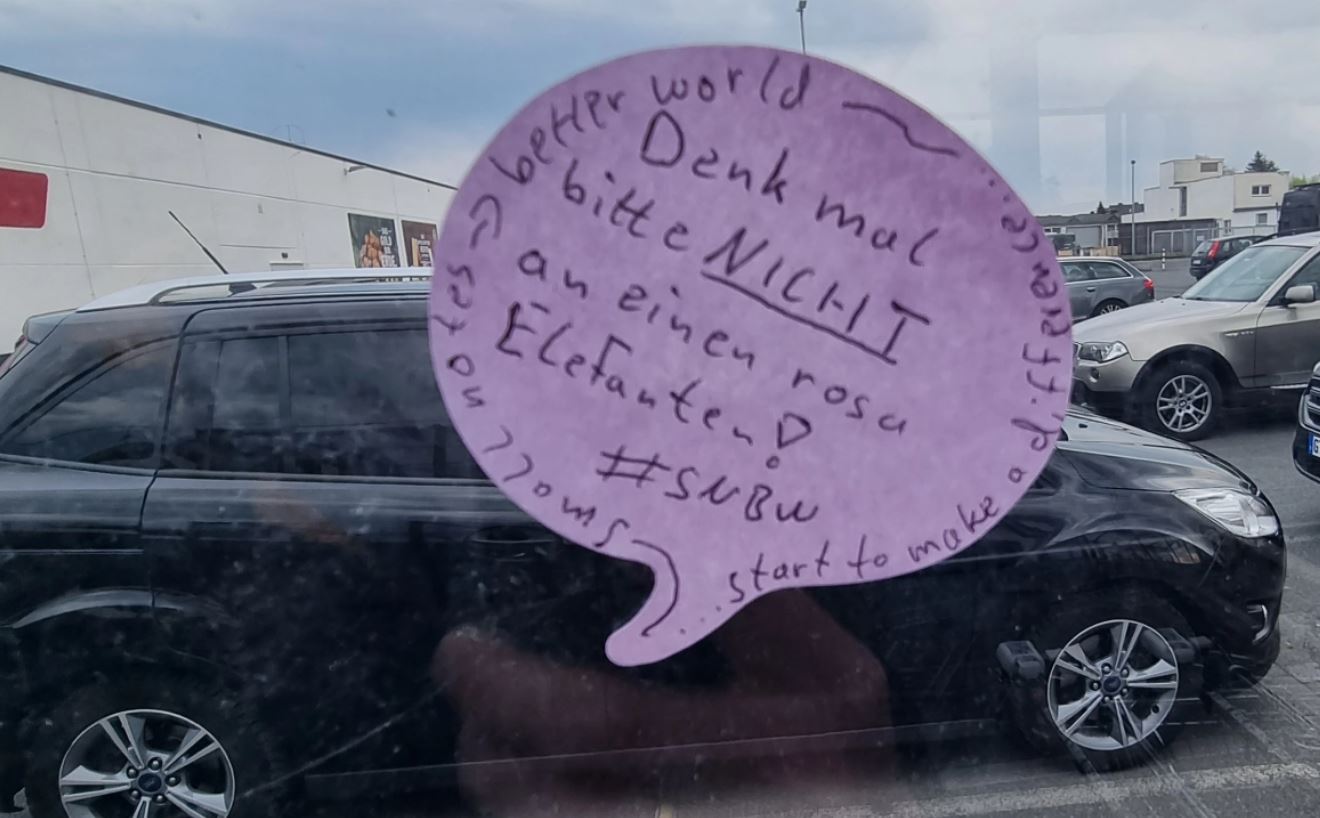 Denk mal
bitte NICHT
an einen rosa
Elefanten!
#SNBW
small notes => better world
...start to make a difference...